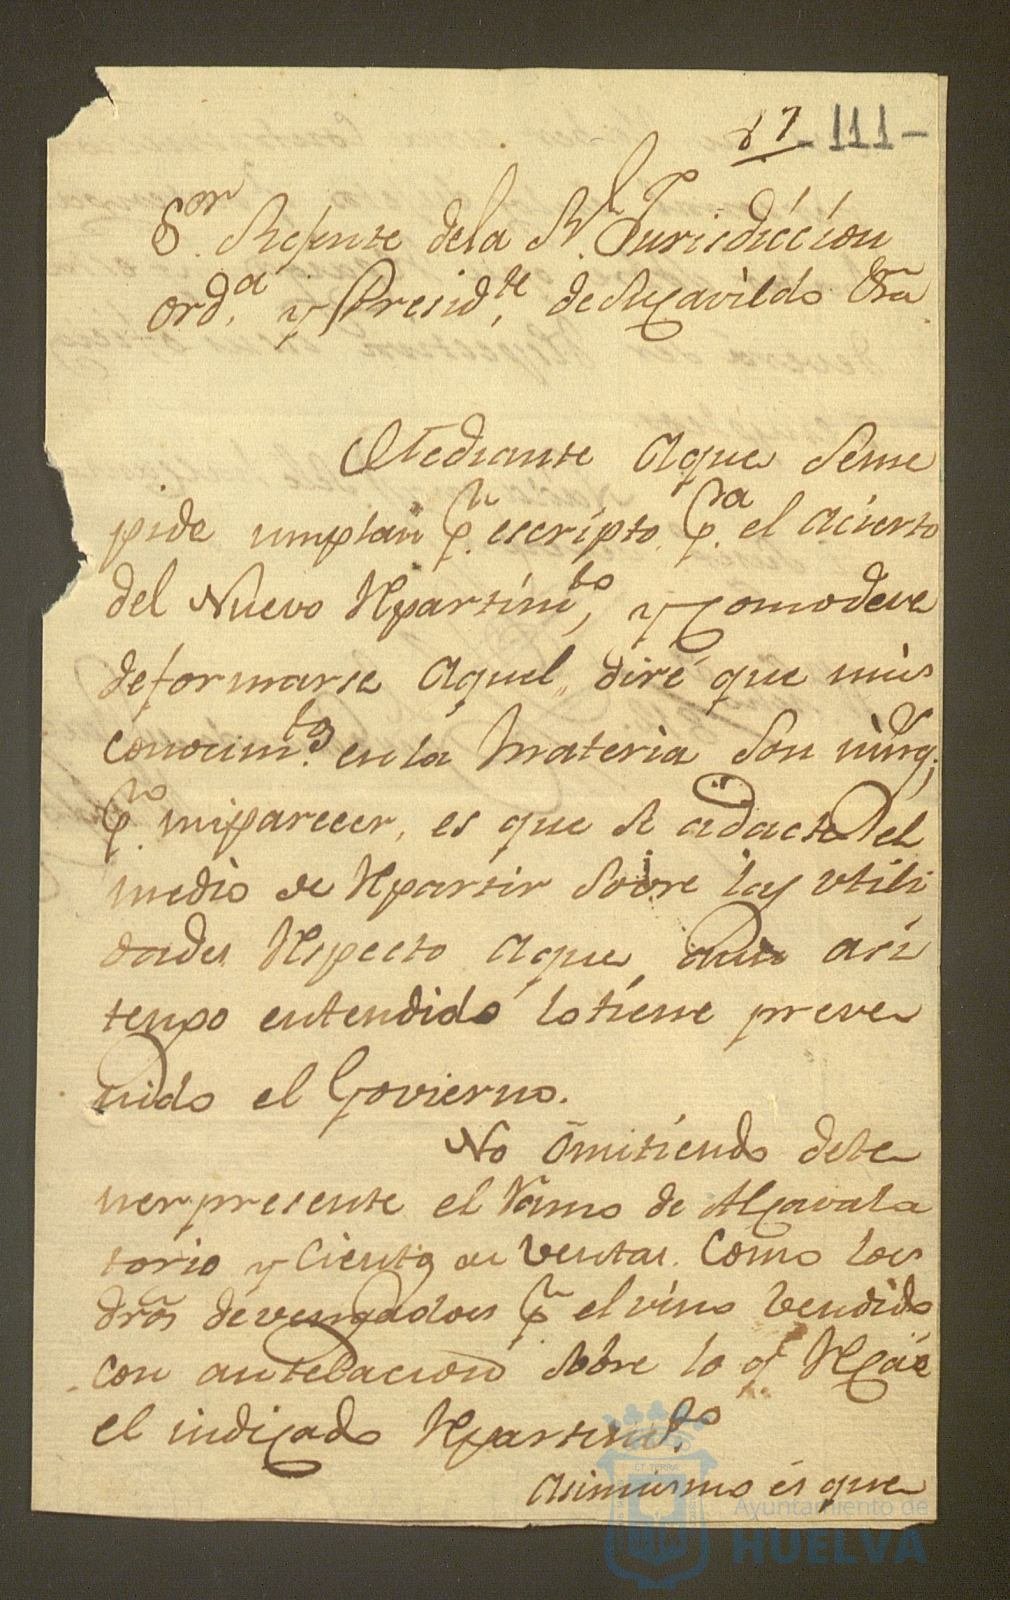 87 - 111 -
S.or Rejente dela R.l Jurisdiccion
ord.a y Presid.te de su Cavildo &ra
Mediante aque seme
pide umplan p.r escripto p.ra el acierto
del Nuevo Rpartim.to, y Como deve
deformarse aquel, diré que mis
conocim.tos en la Materia son ning.s;
p.ro miparecer, es que se adacte el
medio de Rpartir sobre las utili
dades Rspecto aque aun asi
tengo entendido lo tiene preve
nido el Govierno.
No Omitiendo dete
ner presente el Ramo de Alcavala
torio y Cientos en Ventas. Como los
dros devengados p.r el vino Vendido
con antelacion sobre lo q.e Rcáe
el indicado Rpartim.to
asimismo es que
Ayuntamiento de
HUELVA